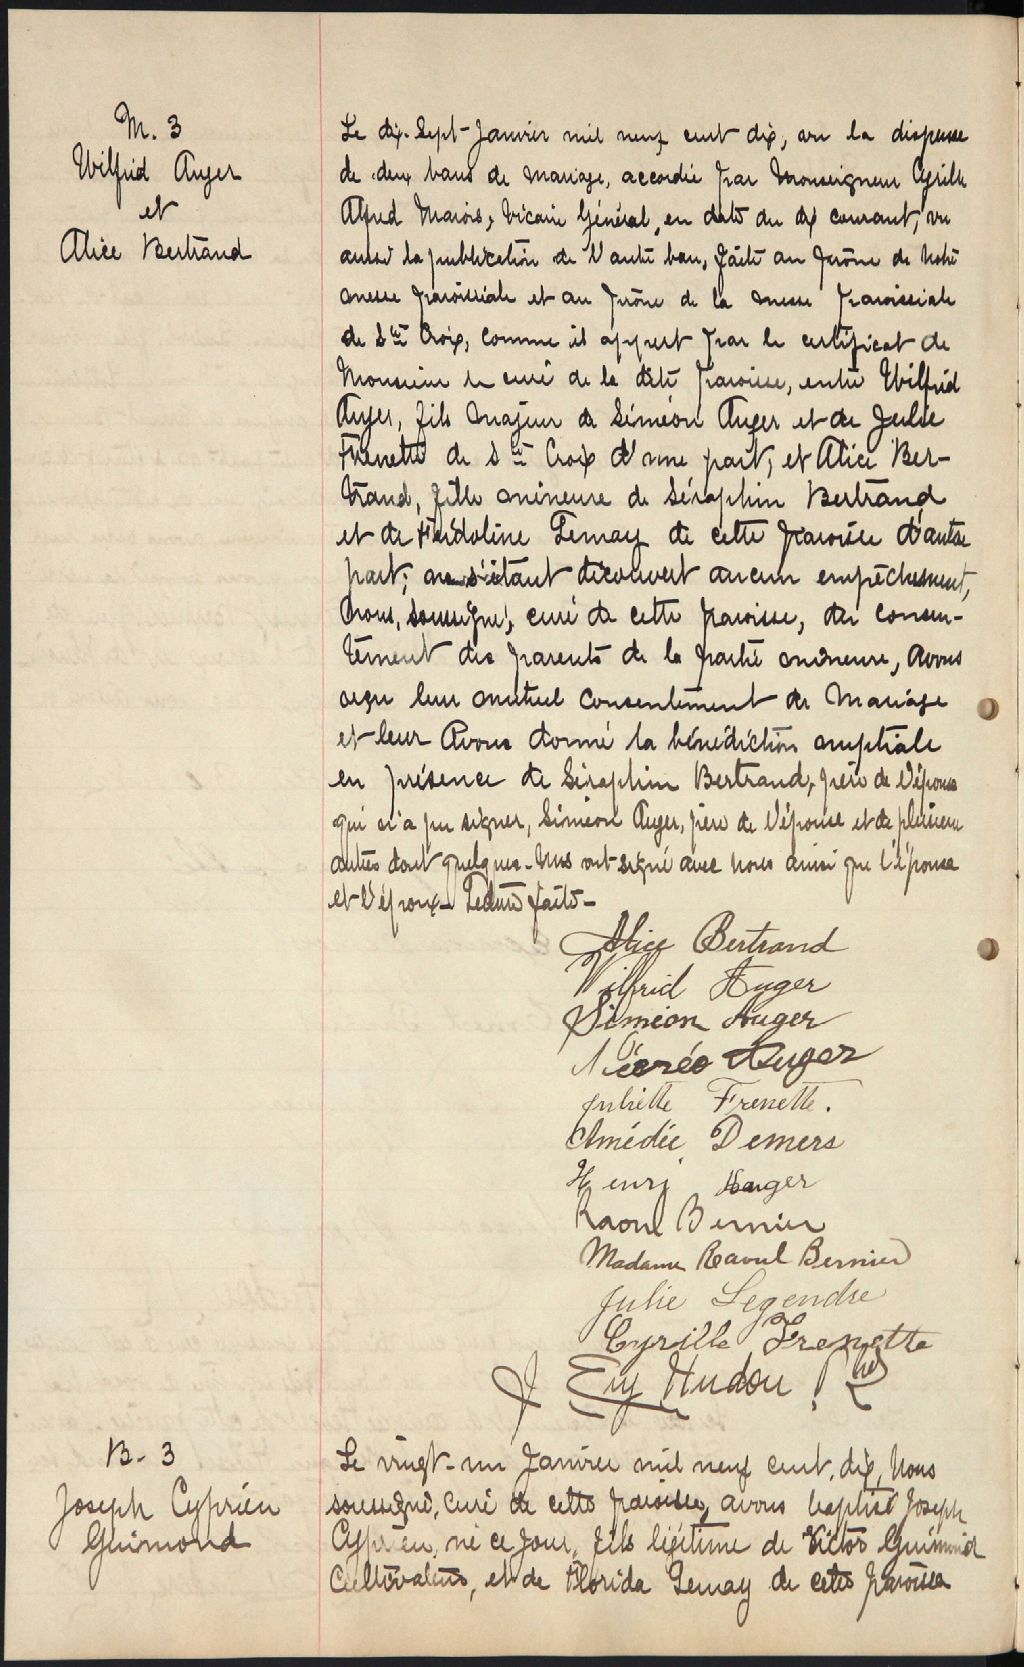 M. 3
Wilfrid Auger
et
Alice Bertrand
Le dix-Sept-Janvier mil neuf cent dix, vu la dispense
de deux bans de mariage, accordée par Monseigneur Cyrille
Alfred Marois, Vicaire Général, en date du dix courant, vu
aussi la publication de l'autre ban, faite au prône de notre
messe paroissiale et au prône de la messe paroissiale
de Ste Croix, comme il appert par le certificat de
Monsieur le curé de la dite paroisse, entre Wilfrid
Auger, fils majeur de Siméon Auger et de Julie
Frenette de Ste Croix d'une part, et Alice Ber-
trand, fille mineure de Séraphin Bertrand
et de Lemay de cette paroisse d'autre
part; ne s'étant découvert aucun empêchement,
Nous, soussigné, curé de cette paroisse, du consen-
tement des parents de la partie mineure, avons
reçu leur mutuel consentement de mariage
et leur avons donné la bénédiction nuptiale
en présence de Séraphin Bertrand, père de l'épouse
qui n'a pu signer, Siméon Auger, père de l'épouse et de plusieurs
autres dont quelques-uns ont signé avec nous ainsi que l'épouse
et l'époux. Lecture faite-
Alice Bertrand
Wilfrid Auger
Siméon Auger
Auger
Juliette Frenette.
Amédée Demers
Henri Auger
Raoul Bernier
Madame Raoul Bernier
Julie Legendre
Cyrille Frenette
J Eug Hudon Ptre
B- 3
Joseph Cyprien
Guimond
Le vingt-un Janvier mil neuf cent dix, Nous
soussigné, curé de cette paroisse, avons baptisé Joseph
Cyprien, né ce jour, fils légitime de Victor Guimond
Cultivateur, et de Florida Lemay de cette paroisse